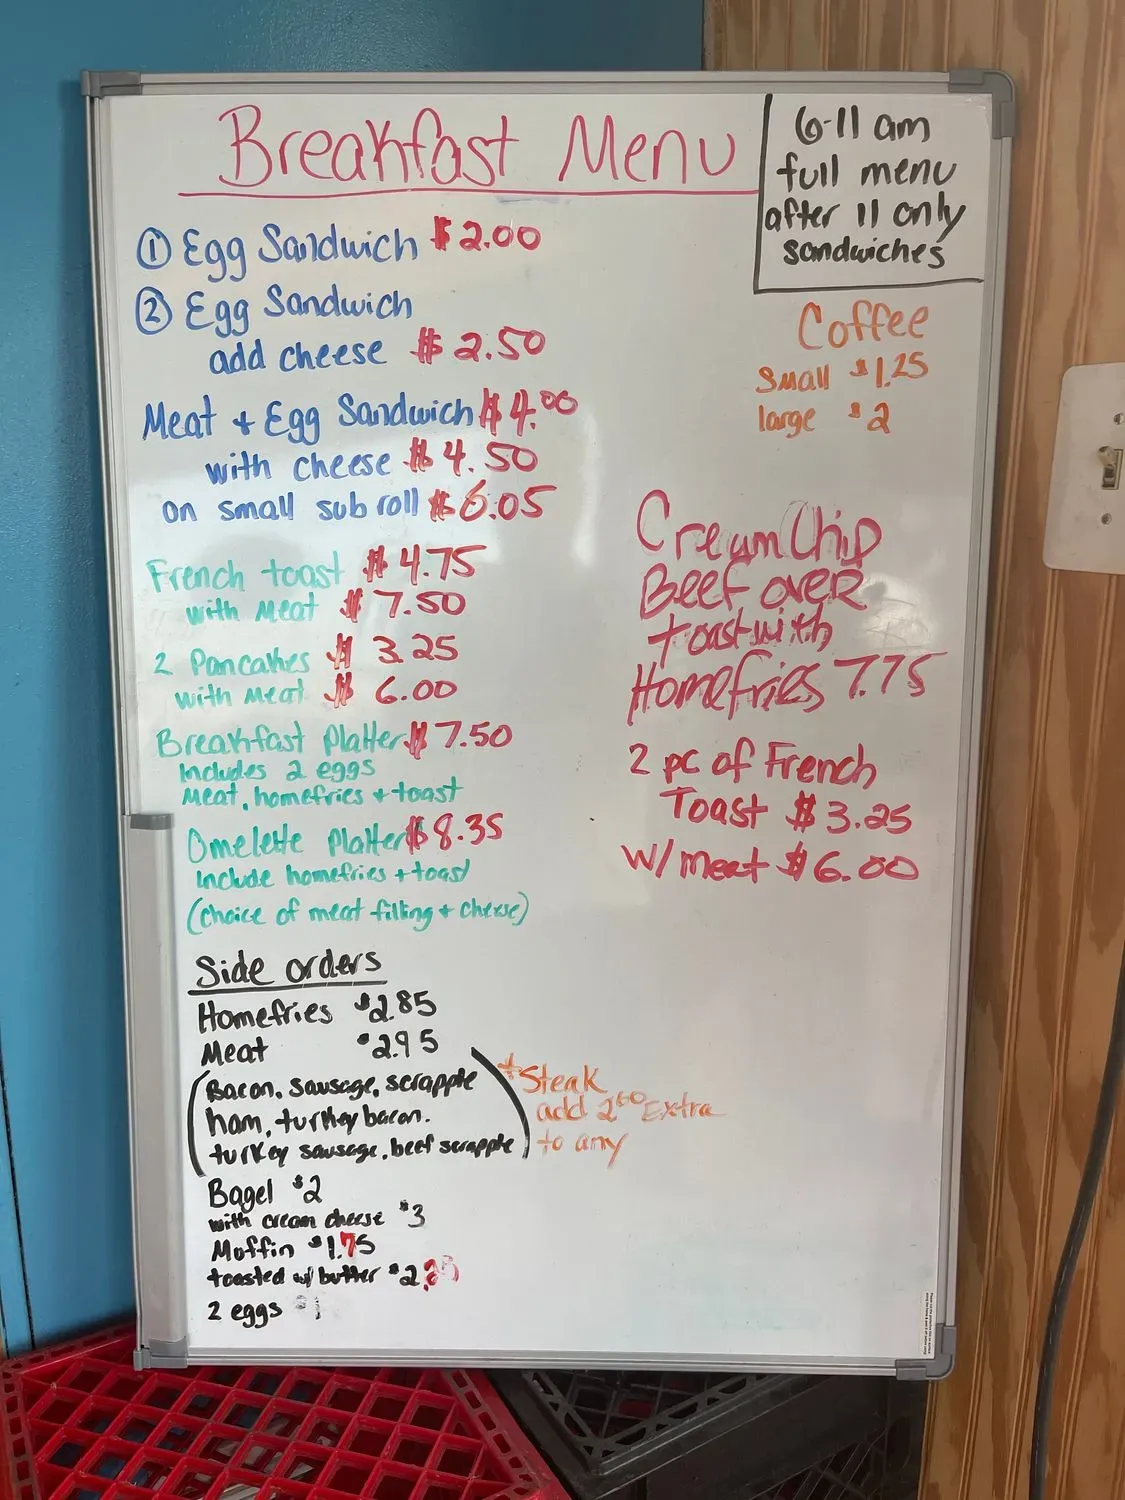 Breakfast Menu
6-11 am
full menu
after 11 only
sandwiches
① Egg Sandwich $2.00
② Egg Sandwich
add cheese $2.50
Meat + Egg Sandwich $4.00
with cheese $4.50
on small sub roll $6.05
French toast $4.75
with meat $7.50
2 Pancakes $3.25
with meat $6.00
Breakfast Platter $7.50
Includes 2 eggs
Meat, homefries + toast
Omelette Platter $8.35
Include homefries + toast
(choice of meat filling + cheese)
Side orders
Homefries $2.85
Meat $2.95
(Bacon, sausage, scrapple
ham, turkey bacon.
turkey sausage, beef scrapple)
*Steak
add 2.60 Extra
to any
Bagel $2
with cream cheese $3
Moffin $1.75
toasted w/ butter $2.25
2 eggs
Coffee
Small $1.25
large $2
Cream Chip
Beef over
toast with
Homefries 7.75
2 pc of French
Toast $3.25
W/ meat $6.00